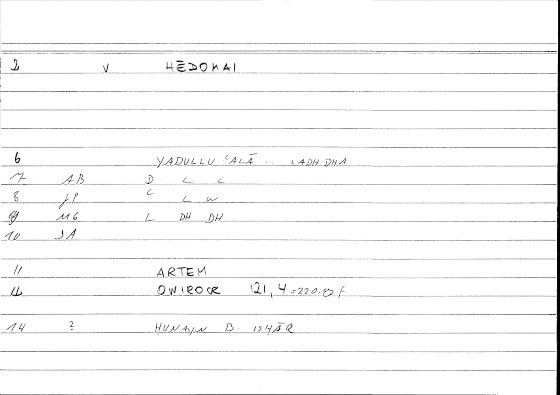 2 V HĒDONAI
6 YADULLU ʿALĀ ... LADHDHA
7 AB D L L
8 JP L L W
9 MG L DH DH
10 JA
11 ARTEM
12 ONIROCR 121, 4 = 220.
14 ? ḤUNAYN B. ISḤĀQ